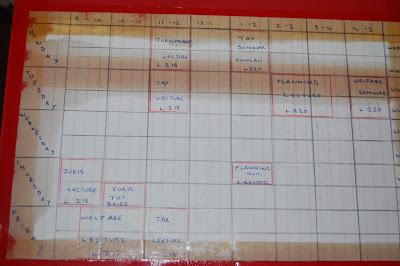 9 - 10 10 - 11 11 - 12 12 - 1 1 - 2 2 - 3 3 - 4 4 - 5
MONDAY
LECTURE
L 218
TAX
SEMINAR
L220
TUESDAY
TAX
LECTURE
L 218
PLANNING
LECTURE
L 220
WELFARE
SEMINAR
L 220
WEDNESDAY
THURSDAY
JURIS
LECTURE
L 218
JURIS
TUT
BAIRD
PLANNING
TUT.
FRIDAY
WELFARE
LECTURE
TAX
LECTURE
18